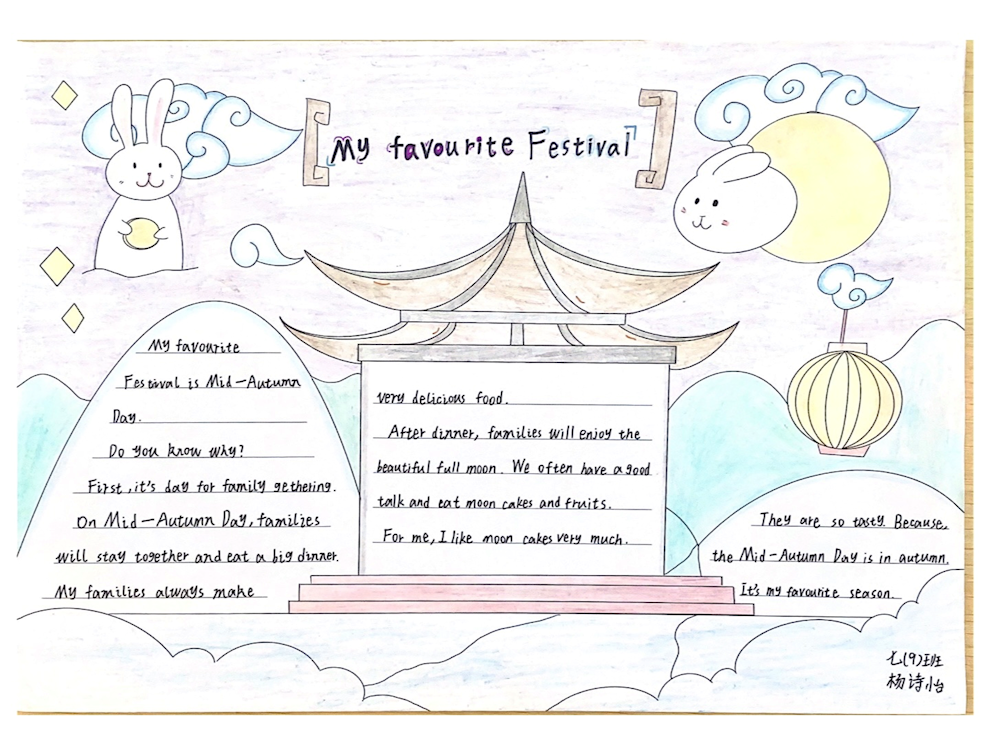 My favourite Festival
My favourite
Festival is Mid-Autumn
Day.
Do you know why?
First, it's day for family gethering.
On Mid-Autumn Day, families
will stay together and eat a big dinner.
My families always make
very delicious food.
After dinner, families will enjoy the
beautiful full moon. We often have a good
talk and eat moon cakes and fruits.
For me, I like moon cakes very much.
They are so tasty. Because,
the Mid-Autumn Day is in autumn.
It's my favourite season.
七(9)班
杨诗怡